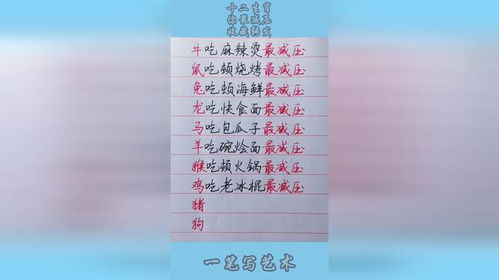 十二生肖
你最减压
收藏转发
牛吃麻辣烫最减压
鼠吃顿烧烤最减压
兔吃顿海鲜最减压
龙吃快食面最减压
马吃包瓜子最减压
羊吃碗烩面最减压
猴吃顿火锅最减压
鸡吃老冰棍最减压
猪
狗
一笔写艺术